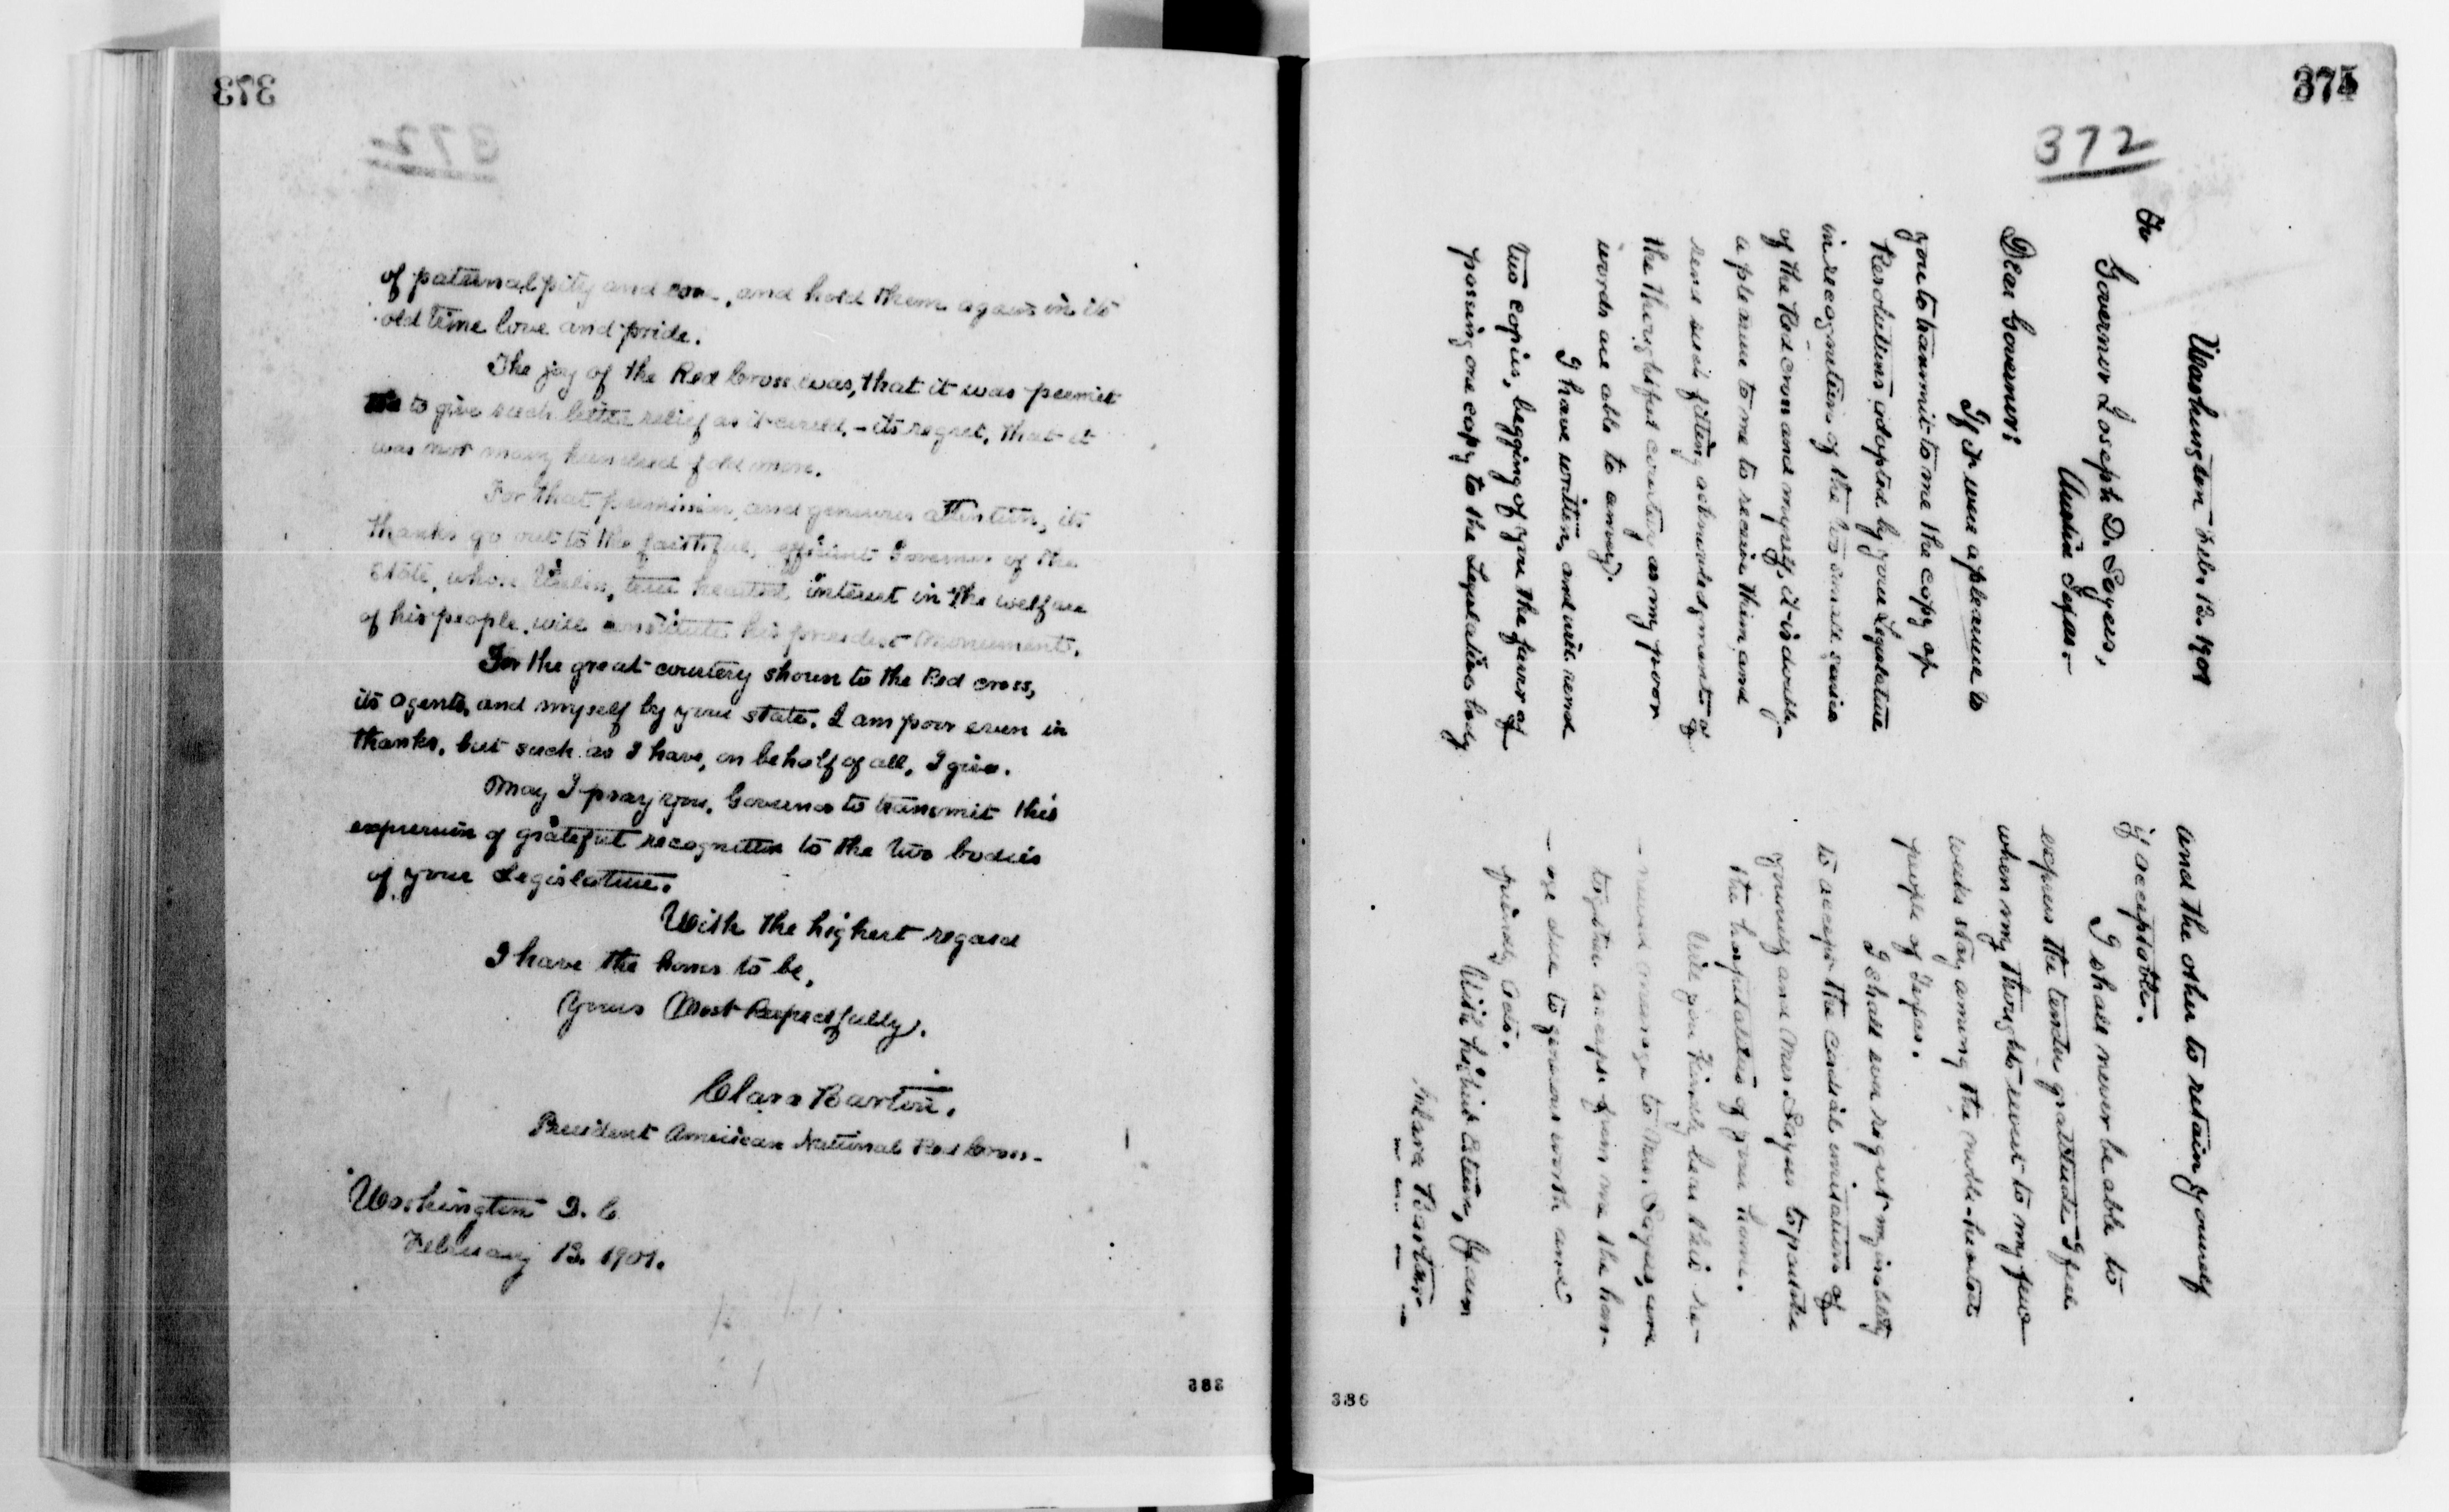 373
372
of paternal pity and care, and hold them again in its
old time love and pride.
The joy of the Red Cross was, that it was permit
to give such little relief as it could, - its regret, that it
was not many hundred fold more.
For that permission, and generous attention, its
thanks go out to the faithful, efficient Governor of the
State, whose tireless, true hearted interest in the welfare
of his people, will constitute his proudest Monument.
For the great courtesy shown to the Red cross,
its agents, and myself by your state, I am poor even in
thanks, but such as I have, on behalf of all, I give.
May I pray you, Governor to transmit this
expression of grateful recognition to the two bodies
of your Legislature.
With the highest regard
I have the honor to be,
Yours Most Respectfully,
Clara Barton.
President American National Red Cross-
Washington D. C.
February 13. 1901.
383
374
372
Washington Feb. 13. 1901
To
Governor Joseph D. Sayers,
Austin Texas.-
Dear Governor:
If it were a pleasure to
you to transmit to me the copy of
Resolutions adopted by your Legislature
in recognition of the too small service
of the Red Cross and myself, it is doubly-
a pleasure to me to receive them and
send such fitting acknowledgments of
the thoughtful courtesy as my poor
words are able to convey.
I have written, and will send
two copies, begging of you the favor of
passing one copy to the Legislative body
and the other to retain yourself
if acceptable.
I shall never be able to
express the tender gratitude I feel
when my thoughts revert to my few
weeks stay among the noble-hearted
people of Texas.
I shall ever regret my inability
to accept the cordial invitation of
yourself and Mrs. Sayers to partake
the hospitalities of your home.
Will you kindly bear this re-
-newed message to Mrs. Sayers, and
together accept from me the hom-
-age due to generous worth and
friendly acts.
With highest esteem, I am
Clara Barton
386